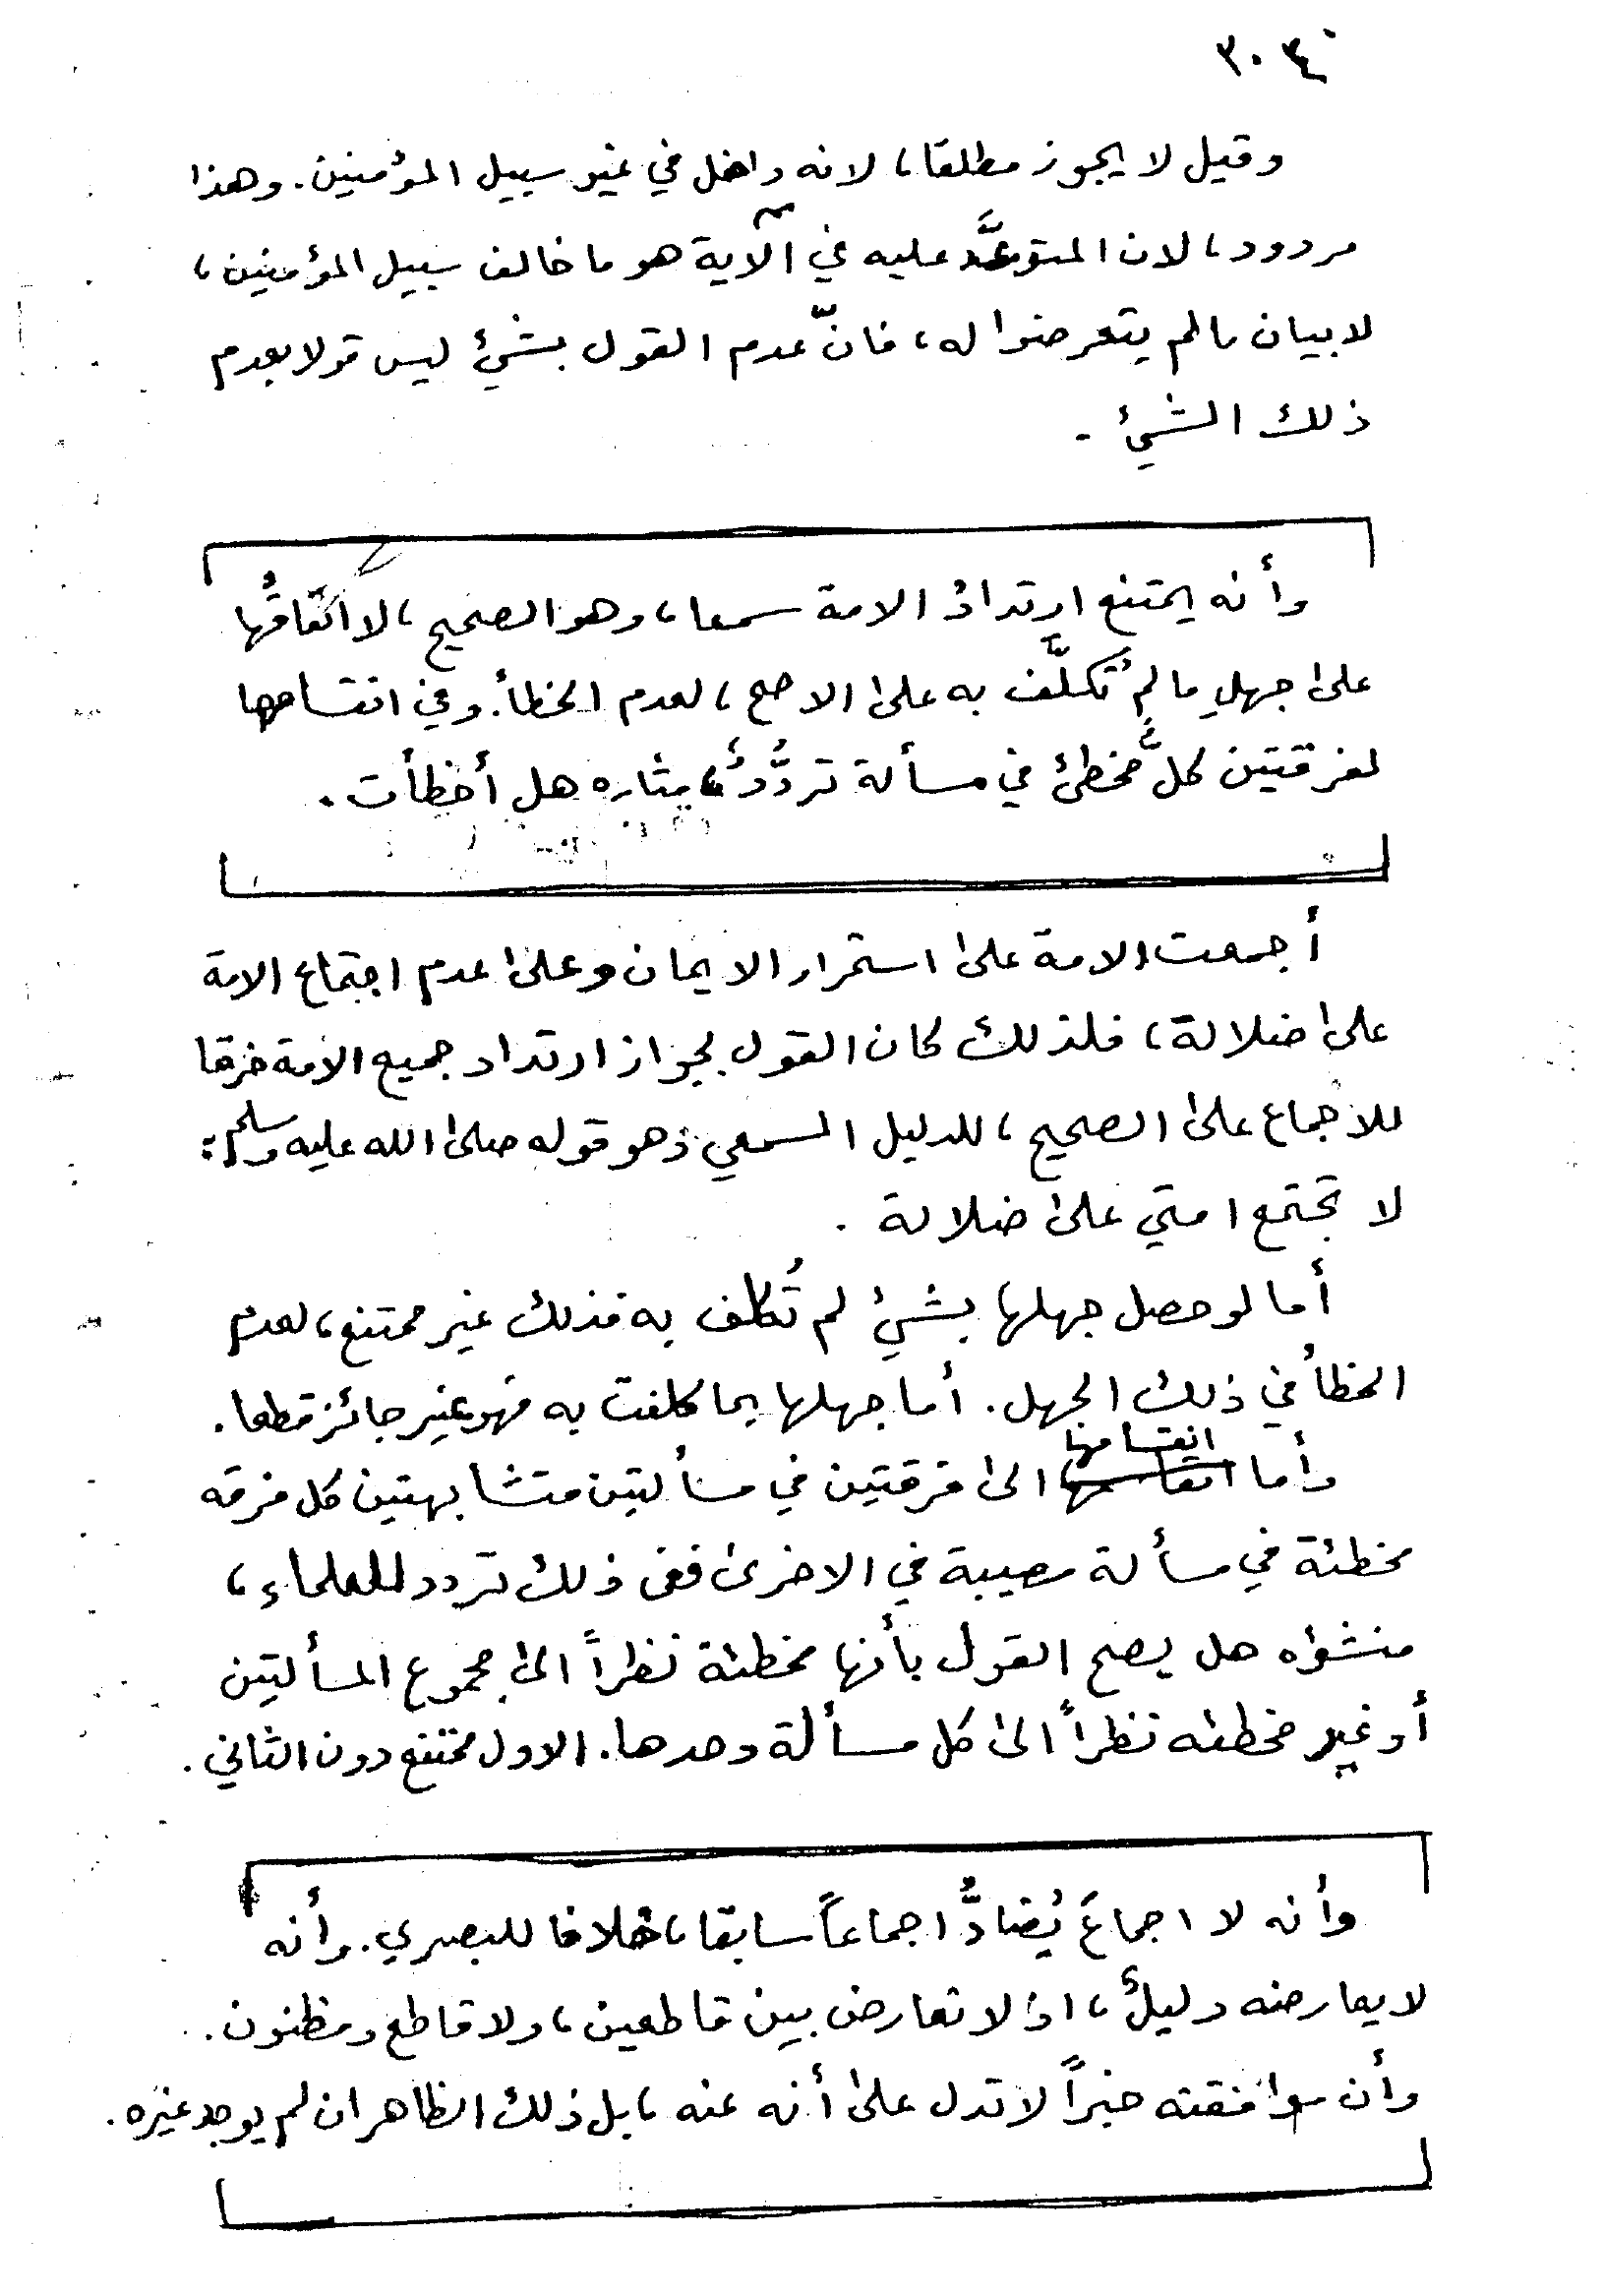 ٣٠٤
وقيل لا يجوز مطلقا، لانه داخل في غير سبيل المؤمنين. وهذا
مردود، لان المتوعَّد عليه في الآية هو ما خالف سبيل المؤمنين،
لا بيان ما لم يتعرضوا له، فانّ عدم القول بشيئ ليس قولا بعدم
ذلك الشيئ .
وأنه يمتنع ارتدادُ الامة سمعا، وهو الصحيح، لا اتّفاقُها
على جهلِ ما لم تُكلَّف به على الاصح، لعدم الخطأ. وفي انقسامها
لفرقتين كلٌّ مخطئ في مسألة تردُّدٌ، مثاره هل أخطأت .
أجمعت الامة على استمرار الايمان وعلى عدم اجتماع الامة
على ضلالة، فلذلك كان القول بجواز ارتداد جميع الامة خرقا
للاجماع على الصحيح، للدليل السمعي وهو قوله صلى الله عليه وسلم:
لا تجتمع امتي على ضلالة .
أما لو حصل جهلها بشيئ لم تُكلف به فذلك غير ممتنع، لعدم
الخطأ في ذلك الجهل. أما جهلها بما كلفت به فهو غير جائز قطعا.
وأما انقسامها الى فرقتين في مسألتين متشابهتين كل فرقه
مخطئة في مسألة مصيبة في الاخرى ففى ذلك تردد للعلماء،
منشؤه هل يصح القول بأنها مخطئة نظراً الى مجموع المسألتين
أو غير مخطئه نظراً الى كل مسألة وحدها. الاول ممتنع دون الثاني.
وأنه لا اجماعَ يُضادُّ اجماعاً سابقا، خلافا للبصري. وأنه
لا يعارضه دليلٌ، اذ لا تعارض بين قاطعين، ولا قاطع ومظنون.
وأن موافقته خبراً لا تدل على أنه عنه، بل ذلك الظاهر ان لم يوجد غيره.